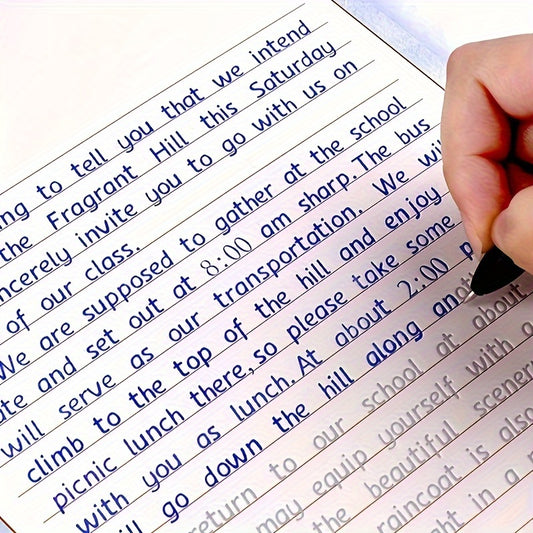 ng to tell you that we intend
the Fragrant Hill this Saturday
ncerely invite you to go with us on
of our class.
We are supposed to gather at the school
ote and set out at 8:00 am sharp. The bus
will serve as our transportation. We wil
climb to the top of the hill and enjoy
picnic lunch there, so please take some
with you as lunch. At about 2:00 p
ll go down the hill along an
return to our school at about
may equip yourself with a
the beautiful scener
raincoat is also
ht in a